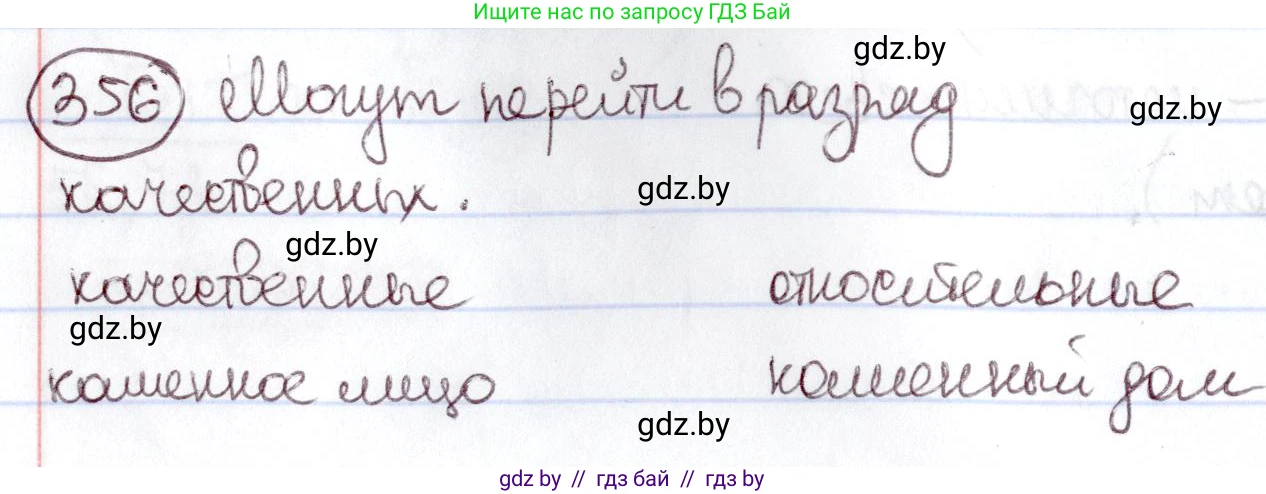 Ищите нас по запросу ГДЗ Бай
gdz.by
356 Могут перейти в разряд
gdz.by
качественных.
gdz.by
gdz.by
качественные относительные
gdz.by
каменное лицо каменный дом
gdz.by
gdz by // гдз бай // гдз by